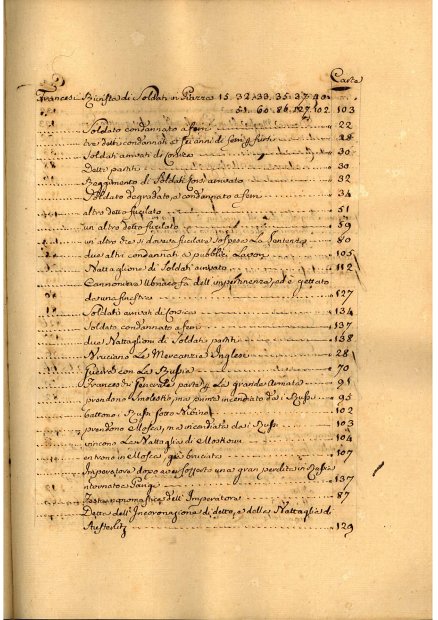 Carte
Francesi Rivista di Soldati in Piazza 15. 32. 33. 35. 37. 40.
51. 66. 86. 127. 102. 103
Soldato condannato a ferri 22
tre detti condannati a sei anni di ferri 28
Soldati arrivati di Corsica 30
Detti partiti 30
Reggimento di Soldati Corsi arrivato 32
Soldato degradato, e condannato a ferri 34
altro detto fucilato 51
un altro detto fucilato 59
un altro che si doveva fucilare sospesa La Sentenza 80
due altri condannati a pubblici Lavori 105
Battaglione di Soldati arrivato 112
Cannoniere Ubriaco fà dell'impertinenza, ed è gettato
da una finestra 127
Soldati arrivati di Corsica 134
Soldato condannato a ferri 137
due Battaglioni di Soldati partiti 138
Bruciano Le Mercanzie Inglesi 28
guerra con La Russia 70
Francesi parte La grande Armata 91
prendono ma prima incendiato da i Russi 95
battono i Russi sotto 102
prendono Mosca, ma incendiata da i Russi 103
vincono La Battaglia di Moskowa 104
entrano in Mosca già bruciata 107
Imperatore dopo aver sofferto una gran perdita in Russia
ritornato a Parigi 137
Festa onomastica dell'Imperatore 87
Detta dell'Incoronazione di detto, e della Battaglia di
Austerlitz 129